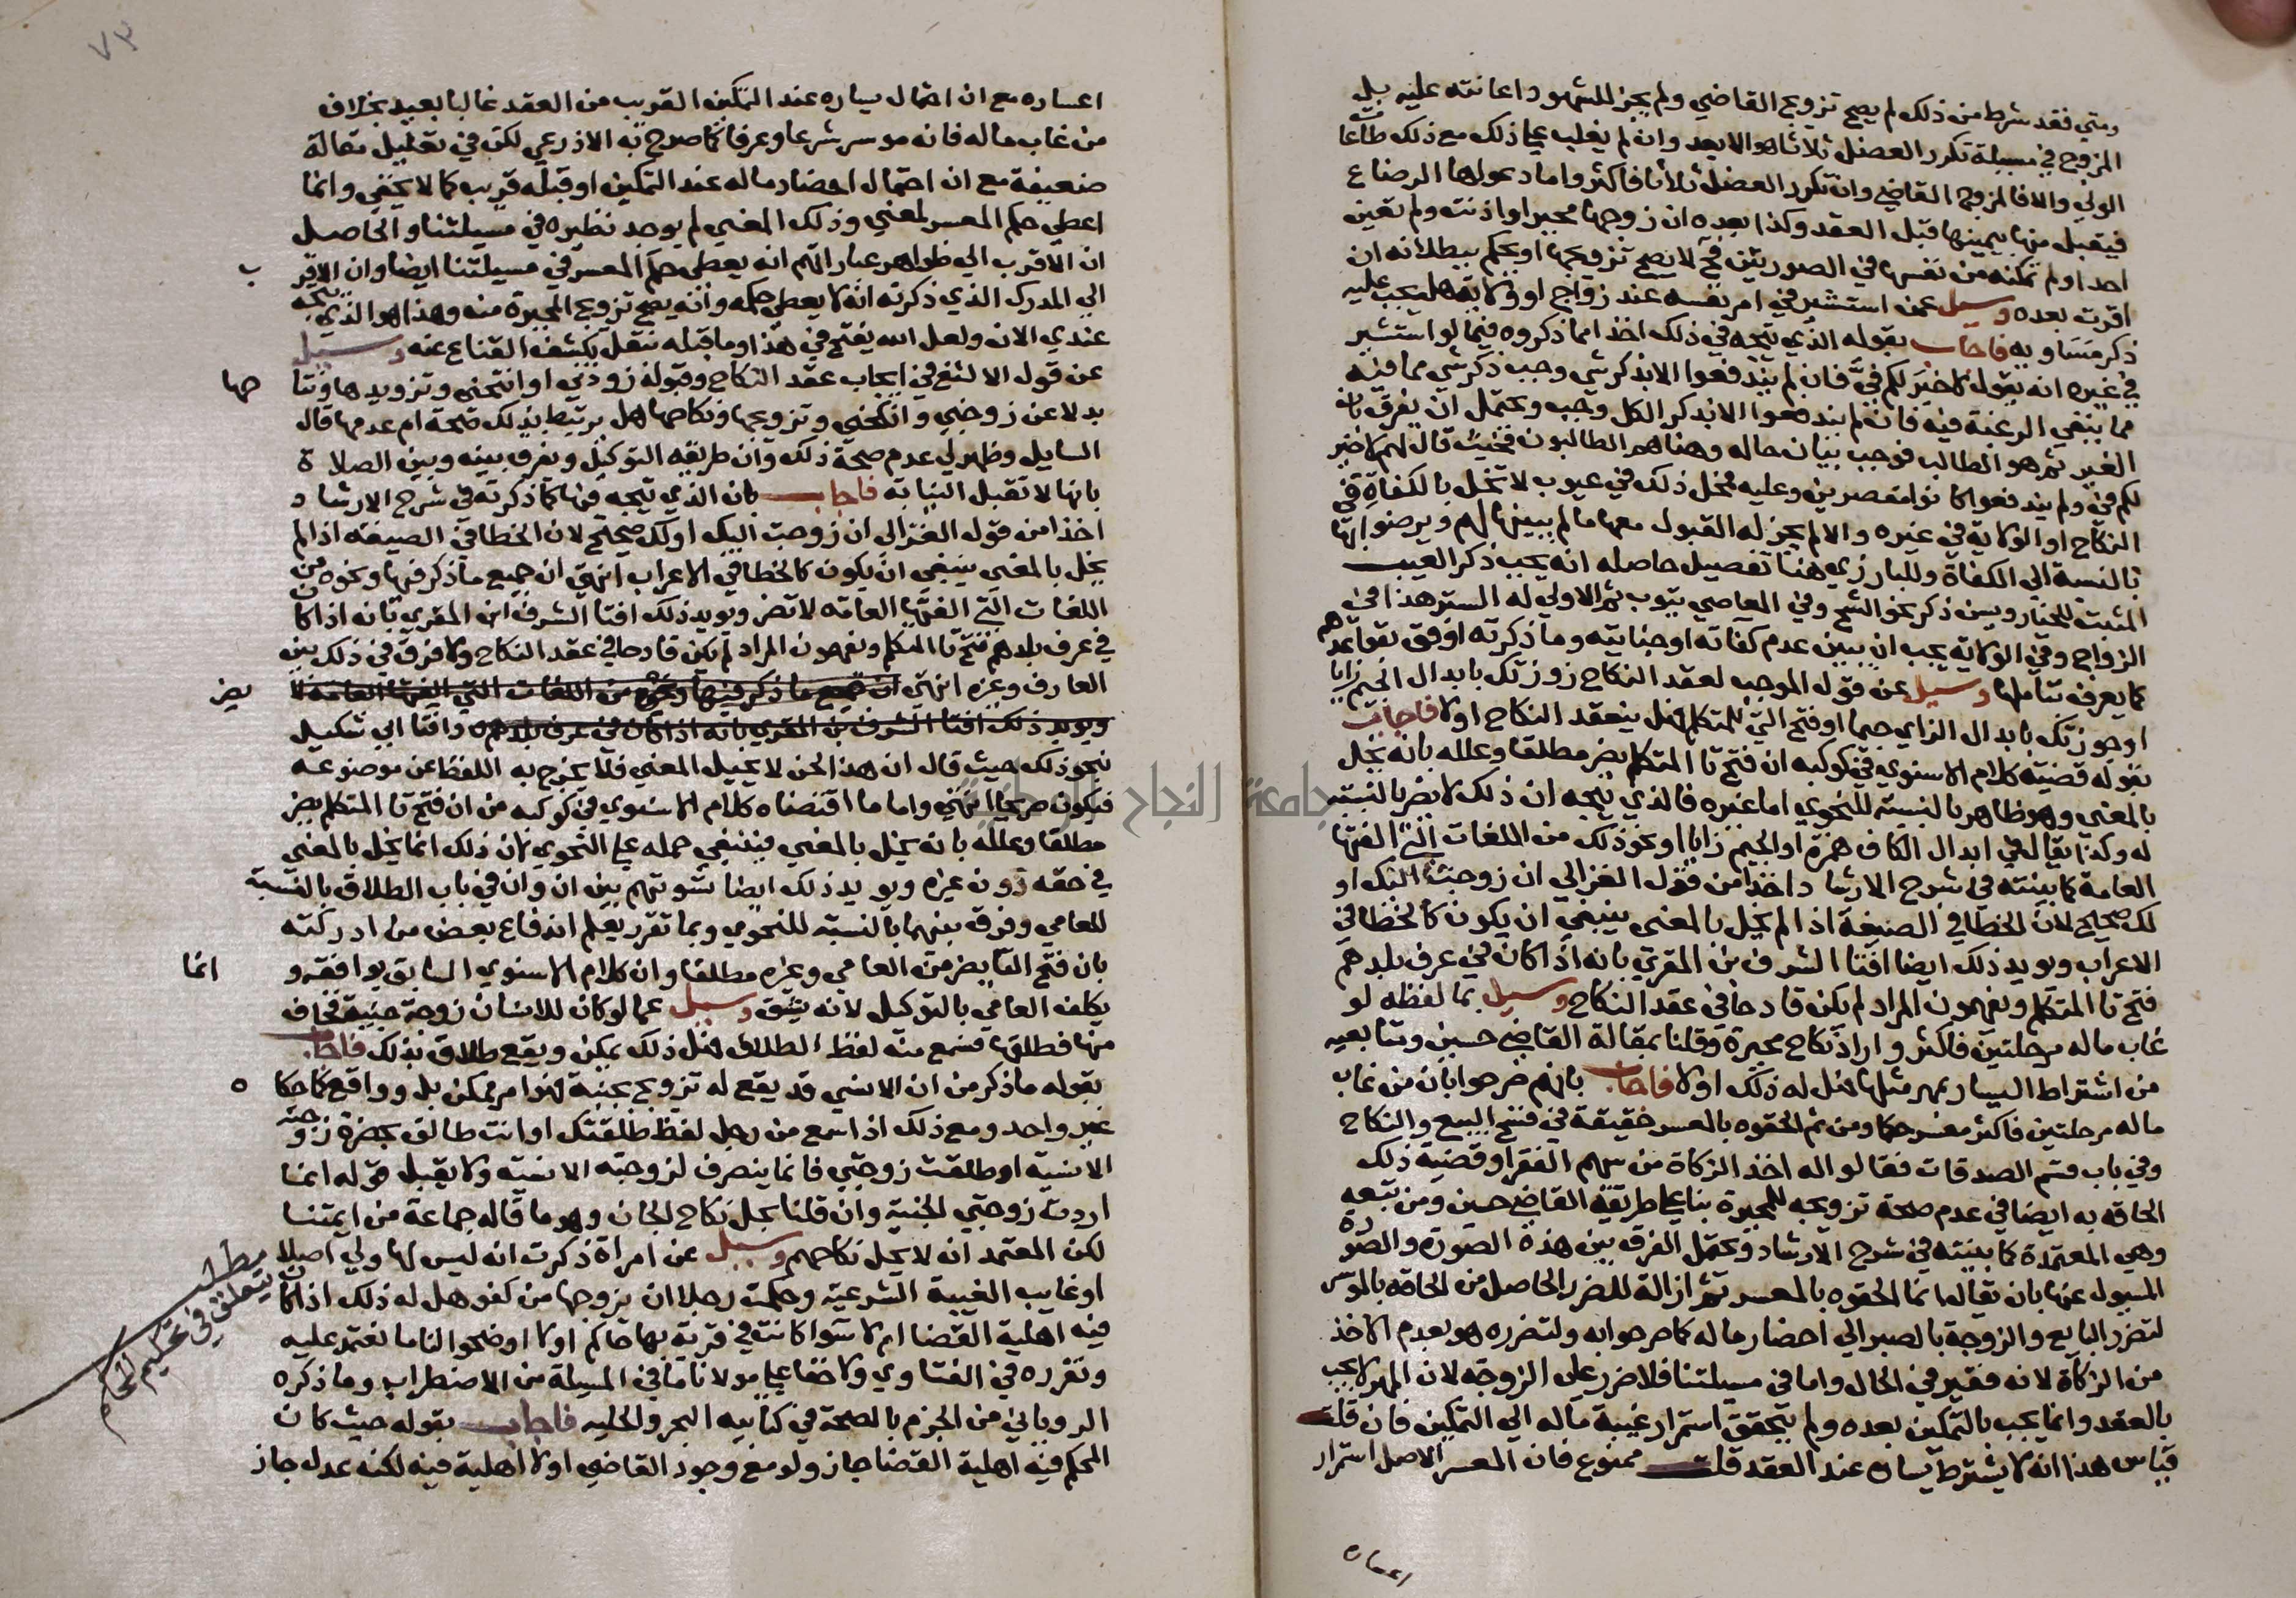 ومتي فقد شرط من ذلك لم يصح تزويج القاضي ولم يجز للشهود اعانته عليه بل
المزوج في مسيلة تكرر العضل ثلاثا هو الابعد وان لم يغلب علي ذلك مع ذلك طاعات
الولي والا فالمزوج القاضي وان تكرر العضل ثلاثا فاكثر واما دعواها الرضاع
فيقبل منها بيمينها قبل العقد وكذا بعده ان زوجها مجبر او اذنت ولم تعين
احدا ولم تمكنه من نفسها في الصورتين فح لا يصح تزويجها او يحكم ببطلانه ان
اقرت بعده وسيل عمن استشير في امر نفسه عند زواج او ولاية هل يجب عليه
ذكر مساويه فاجاب بقوله الذي يتجه في ذلك اخذا مما ذكروه فيما لو استشير
في غيره انه يقول لا خير لكم في فان لم يندفعوا الا بذكر شي وجب ذكر شي مما فيه
مما ينفي الرغبة فيه فان لم يندفعوا الا بذكر الكل وجب ويحتمل ان يفرق بان
الغير ثم هو الطالب فوجب بيان حاله وهنا هم الطالبون فحيث قال لهم لا خير
لكم في ولم يندفعوا كانوا مقصرين وعليه فمحل ذلك في عيوب لا تخل بالكفاة في
النكاح او الولاية في غيره والا لم يجز له القبول معها ما لم يبينها لهم ويرضوا بها
بالنسبة الي الكفاة وللبارزي هنا تفصيل حاصله انه يجب ذكر العيب
المثبت للخيار ويسن ذكر نحو الشح وفي المعاصي يتوب ثم الاولي له الستر هذا في
الزواج وفي الولاية يجب ان يبين عدم كفاته او جنايته وما ذكرته اوفق بقواعدهم
كما يعرف بتاملها وسيل عن قول الموجب لعقد النكاح زوزتك بابدال الجيم زايا
او جوزتك بابدال الزاي جيما او فتح التي للمتكلم هل ينعقد النكاح اولا فاجاب
بقوله قضية كلام الاسنوي في كوكبه ان فتح تا المتكلم يضر مطلقا وعلله بانه يخل
بالمعني وهو ظاهر بالنسبة للنحوي اما غيره فالذي يتجه ان ذلك لا يضر بالنسبة
له وكذا يقال في ابدال الكاف همزة او الجيم زايا او نحو ذلك من اللغات التي الفتها
العامة كما بينته في شرح الارشاد اخذا من قول الغزالي ان زوجت اليك او
لك صحيح لان الخطا في الصيغة اذا لم يخل بالمعني ينبغي ان يكون كالخطا في
الاعراب ويويد ذلك ايضا افتا الشرف بن المقري بانه اذا كان في عرف بلدهم
فتح تا المتكلم ويفهمون المراد لم يكن قادحا في عقد النكاح وسيل بما لفظه لو
غاب ماله مرحلتين فاكثر واراد نكاح مجبرة وقلنا بمقالة القاضي حسين ومتابعيه
من اشتراط اليسار بمهر مثلها فهل له ذلك اولا فاجاب بانهم صرحوا بان من غاب
ماله مرحلتين فاكثر معسر حكما ومن ثم الحقوه بالمعسر حقيقة في فسخ البيع والنكاح
وفي باب قسم الصدقات فقالوا له اخذ الزكاة من سهم الفقرا وقضية ذلك
الحاقه به ايضا في عدم صحة تزويجه للمجبرة بنا علي طريقة القاضي حسين ومن تبعه
وهي المعتمدة كما بينته في شرح الارشاد ويحتمل الفرق بين هذه الصورة والصورة
المسيول عنها بان يقال انما الحقوه بالمعسر ثم ازالة للضرر الحاصل من الحاقه بالموسر
لتضرر البايع والزوجة بالصبر الي احضار ماله كما صرحوا به ولتضرره هو بعدم الاخذ
من الزكاة لانه فقير في الحال واما في مسيلتنا فلا ضرر علي الزوجة لان المهر لا يجب
بالعقد وانما يجب بالتمكين بعده ولم يتحقق استمرار غيبة ماله الي التمكين فان قلت
قياس هذا انه لا يشترط يساره عند العقد قلت ممنوع فان المعسر الاصل استمرار
اعساره
٧٣
اعساره مع ان احتمال يساره عند التمكين القريب من العقد غالبا بعيد بخلاف
من غاب ماله فانه موسر شرعا وعرفا كما صرح به الاذرعي لكن في تعليل مقالة
ضعيفة مع ان احتمال احضار ماله عند التمكين او قبله قريب كما لا يخفي وانما
اعطي حكم المعسر لمعني وذلك المعني لم يوجد نظيره في مسيلتنا والحاصل
ان الاقرب الي ظواهر عباراتهم انه يعطي حكم المعسر في مسيلتنا ايضا وان الاقر ب
الي المدرك الذي ذكرته انه لا يعطي حكمه وانه يصح تزويج المجبرة منه وهذا هو الذي يتجه
عندي الان ولعل الله يفتح في هذا وما قبله بنقل يكشف القناع عنه وسيل
عن قول الالثغ في ايجاب عقد النكاح وقبوله زودني او انتحني وتزويدها ونتا حها
بدلا عن زوجني وانكحني وتزويجها ونكاحها هل يرتبط بذلك صحة ام عدمها قال
السايل وظهر لي عدم صحة ذلك وان طريقه التوكيل ويفرق بينه وبين الصلاة
بانها لا تقبل النيابة فاجاب بان الذي يتجه فيها كما ذكرته في شرح الارشاد
اخذا من قول الغزالي ان زوجت اليك او لك صحيح لان الخطا في الصيغة اذا لم
يخل بالمعني ينبغي ان يكون كالخطا في الاعراب انتهي ان جميع ما ذكر فيها ونحوه من
اللغات التي الفتها العامة لا تضر ويويد ذلك افتا الشرف ابن المقري بانه اذا كان
في عرف بلدهم فتح تا المتكلم ويفهمون المراد لم يكن قادحا في عقد النكاح ولا فرق في ذلك بين
العارف وغيره انتهي ان جميع ما ذكر فيها ونحوه من اللغات التي الفتها العامة لا يضر
ويويد ذلك افتا الشرف بن المقري بانه اذا كان في عرف بلدهم وافتا ابي شكيل
بنحو ذلك حيث قال ان هذا لحن لا يحيل المعني فلا يخرج به اللفظ عن موضوعه
فيكون صريحا انتهي واما ما اقتضاه كلام الاسنوي في كوكبه من ان فتح تا المتكلم يضر
مطلقا وعلله بانه يخل بالمعني فينبغي حمله علي النحوي لان ذلك انما يخل بالمعني
في حقه دون غيره ويويد ذلك ايضا تسويتهم بين ان وان في باب الطلاق بالنسبة
للعامي وفرق بينهما بالنسبة للنحوي وبما تقرر يعلم اندفاع بعض من ادركته
بان فتح التا يضر من العامي وغيره مطلقا وان كلام الاسنوي السابق يوافقه و انما
يكلف العامي بالتوكيل لانه يشق وسيل عما لو كان للانسان زوجة جنية فخاف
منها فطلقها فسمع منه لفظ الطلاق فهل ذلك يمكن ويقع طلاق بذلك فاجاب
بقوله ما ذكر من ان الانسي قد يقع له تزويج بجنية فهو امر ممكن بل وواقع كما حكا ه
غير واحد ومع ذلك اذا سمع من رجل لفظ طلقتك او انت طالق بحضرة زوجته
الانسية او طلقت زوجتي فانما ينصرف لزوجته الانسية ولا يقبل قوله انما
اردت زوجتي الجنية وان قلنا بحل نكاح الجان وهو ما قاله جماعة من ايمتنا
لكن المعتمد انه لا يحل نكاحهم وسيل عن امراة ذكرت انه ليس لها ولي اصلا
او غايب الغيبة الشرعية وحكمت رجلا ان يزوجها من كفو هل له ذلك اذا كان
فيه اهلية القضا ام لا سوا كانت في قرية بها حاكم اولا اوضحوا لنا ما نعتمد عليه
ونقرره في الفتاوي ولا خفا علي مولانا ما في المسيلة من الاضطراب وما ذكره
الروياني من الجزم بالصحة في كتابيه البحر والحلية فاجاب بقوله حيث كان
المحكم فيه اهلية القضا جاز ولو مع وجود القاضي او لا اهلية فيه لكنه عدل جاز
مطلب
يتعلق في تحكيم الحاكم
جامعة النجاح